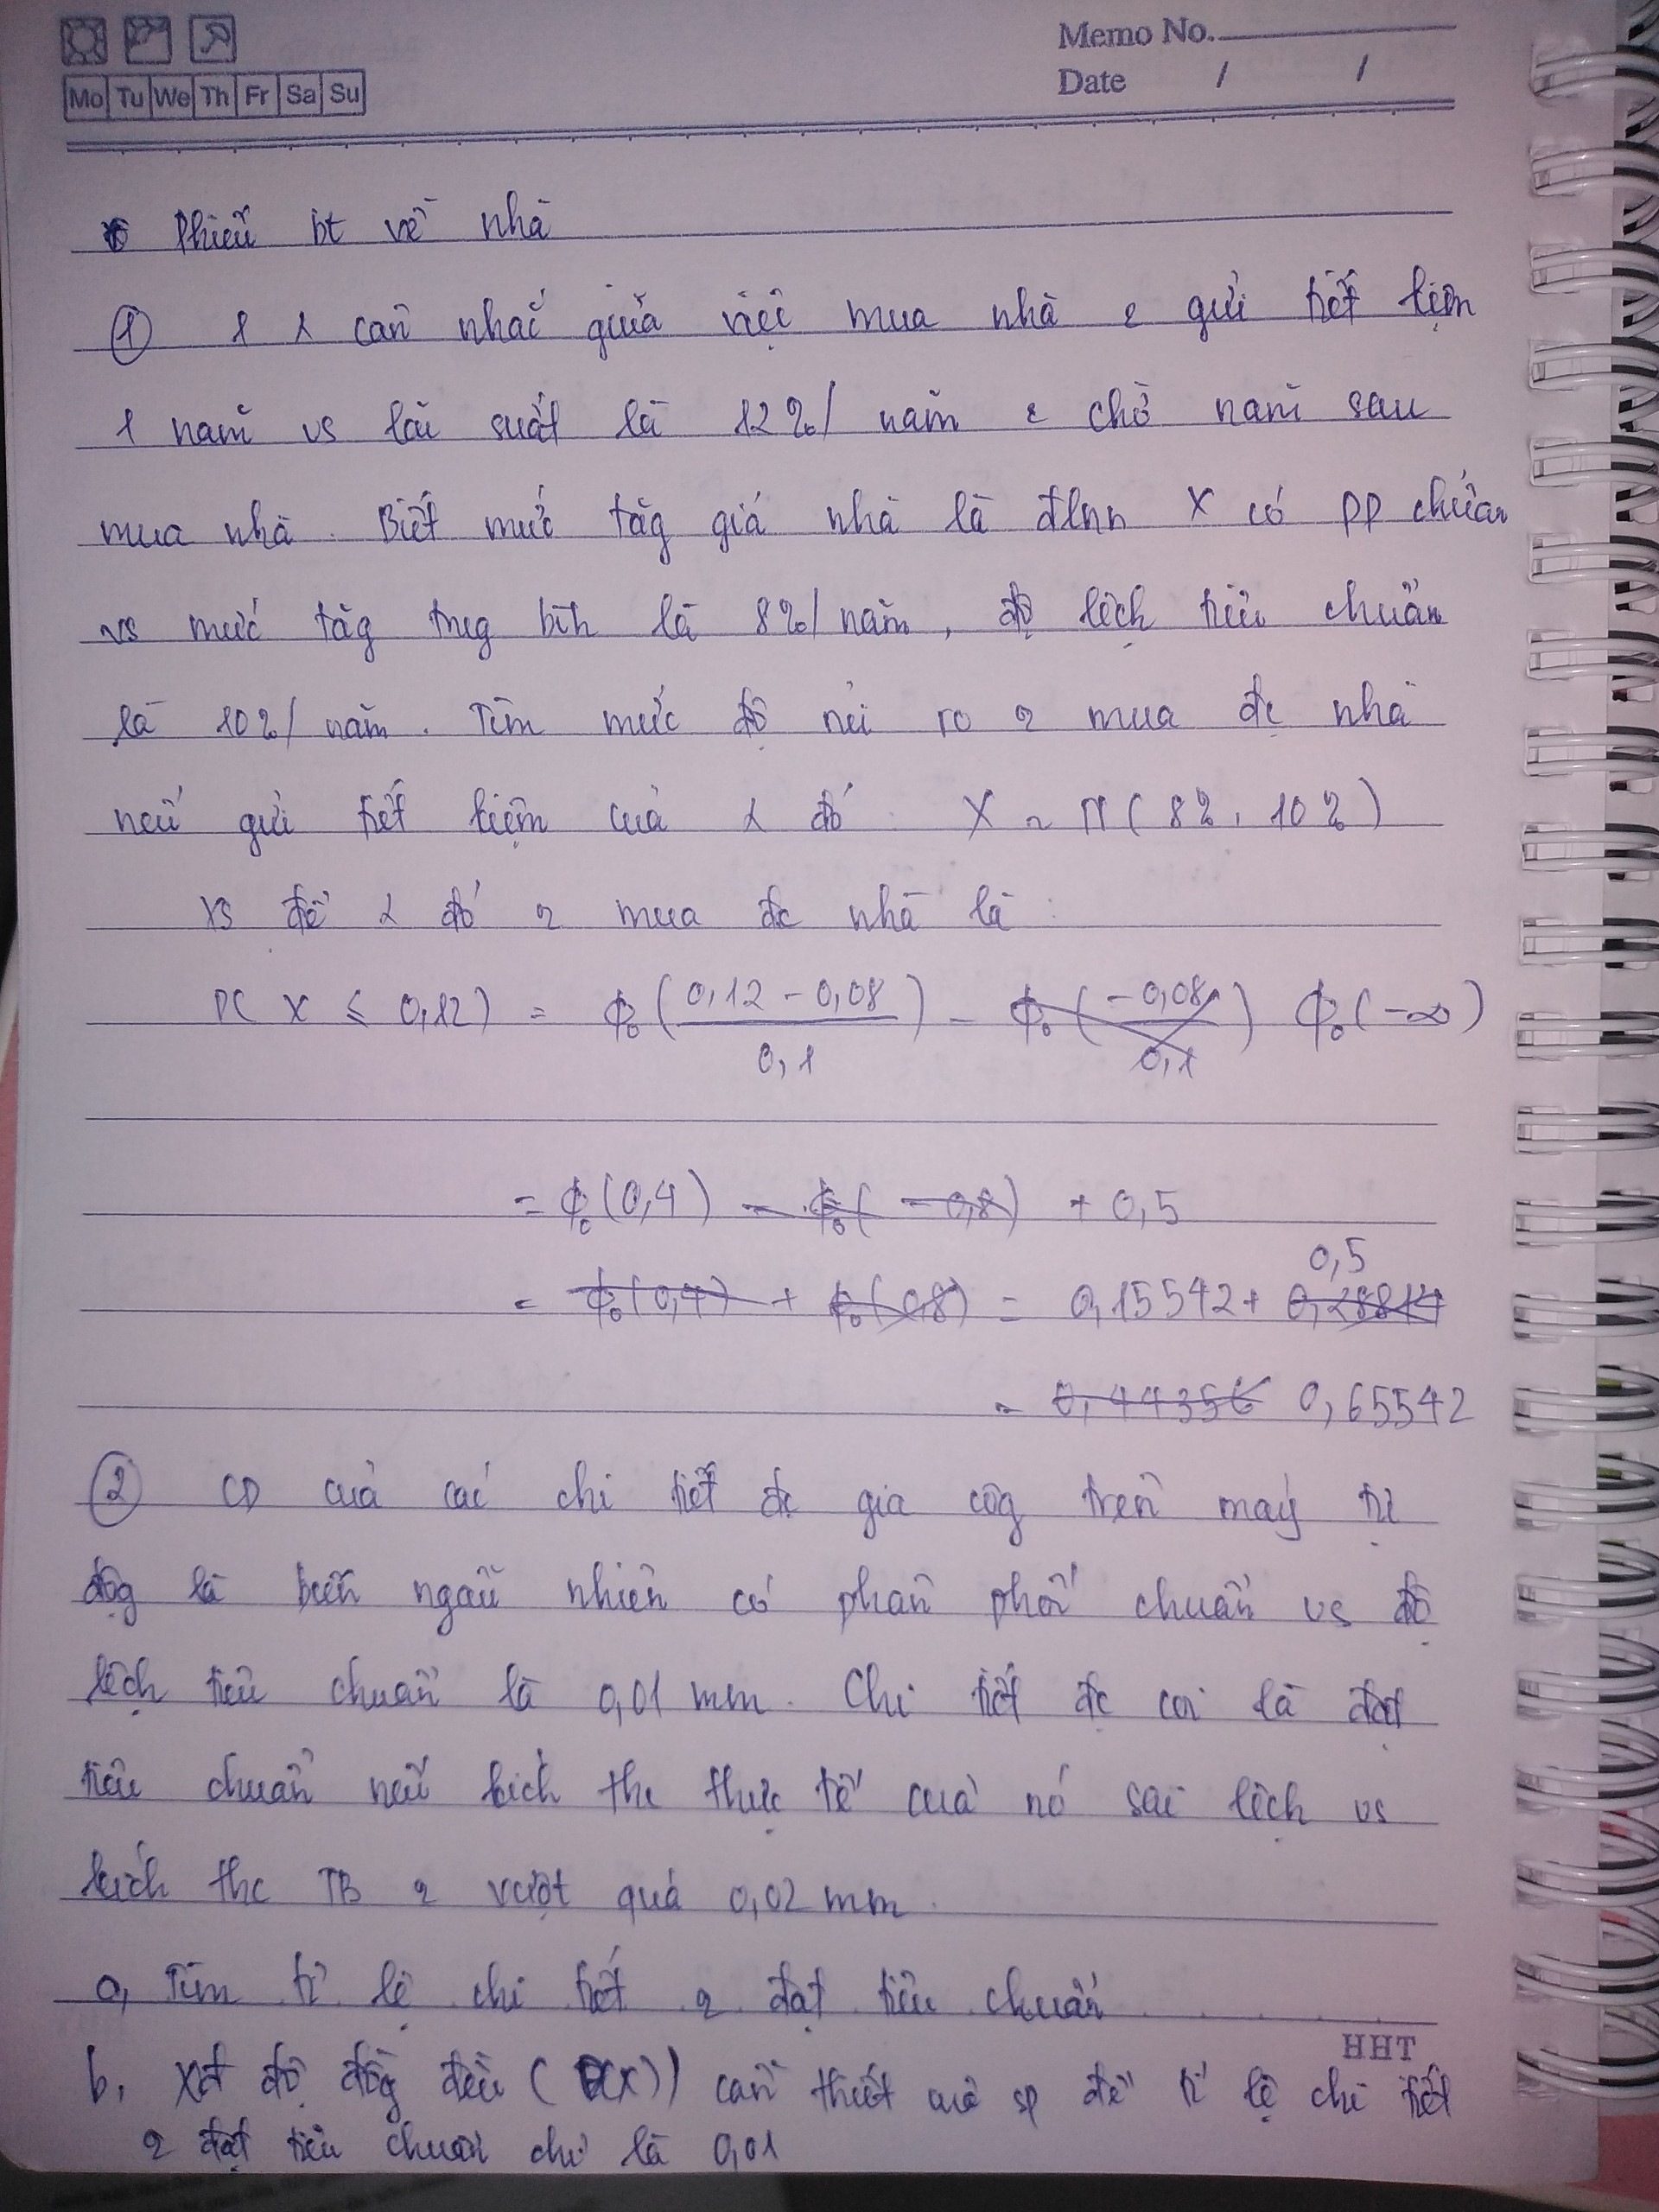 Memo No.
Date / /
Mo Tu We Th Fr Sa Su
Phiếu bt về nhà
① 1 cân nhắc giữa việc mua nhà & gửi tiết kiệm
1 năm vs lãi suất là 12%/năm & chờ năm sau
mua nhà. Biết mức tăg giá nhà là đlnn X có pp chuẩn
vs mức tăg trug bìh là 8%/năm, độ lệch tiêu chuẩn
là 10%/năm. Tìm mức độ rủi ro mua đc nhà
nếu gửi tiết kiệm của đó X ~ N(8%, 10%)
XS để đó mua đc nhà là:
P(X ≤ 0,12) = Φ₀(0,12 - 0,08 / 0,1) - Φ₀(-0,08 / 0,1) Φ₀(-∞)
= Φ₀(0,4) - Φ₀(-0,8) + 0,5
= Φ₀(0,4) + Φ₀(0,8) = 0,15542 + 0,28814 0,5
= 0,44356 0,65542
② CD của các chi tiết đc gia côg trên máy tự
độg là biến ngẫu nhiên có phân phối chuẩn vs độ
lệch tiêu chuẩn là 0,01 mm. Chi tiết đc coi là đạt
tiêu chuẩn nếu kích thc thực tế của nó sai lệch vs
kích thc TB vượt quá 0,02 mm.
a, Tìm tỉ lệ chi tiết đạt tiêu chuẩn
HHT
b, Xđ độ đồg đều (D(X)) cần thiết của sp để tỉ lệ chi tiết
đạt tiêu chuẩn chỉ là 0,01